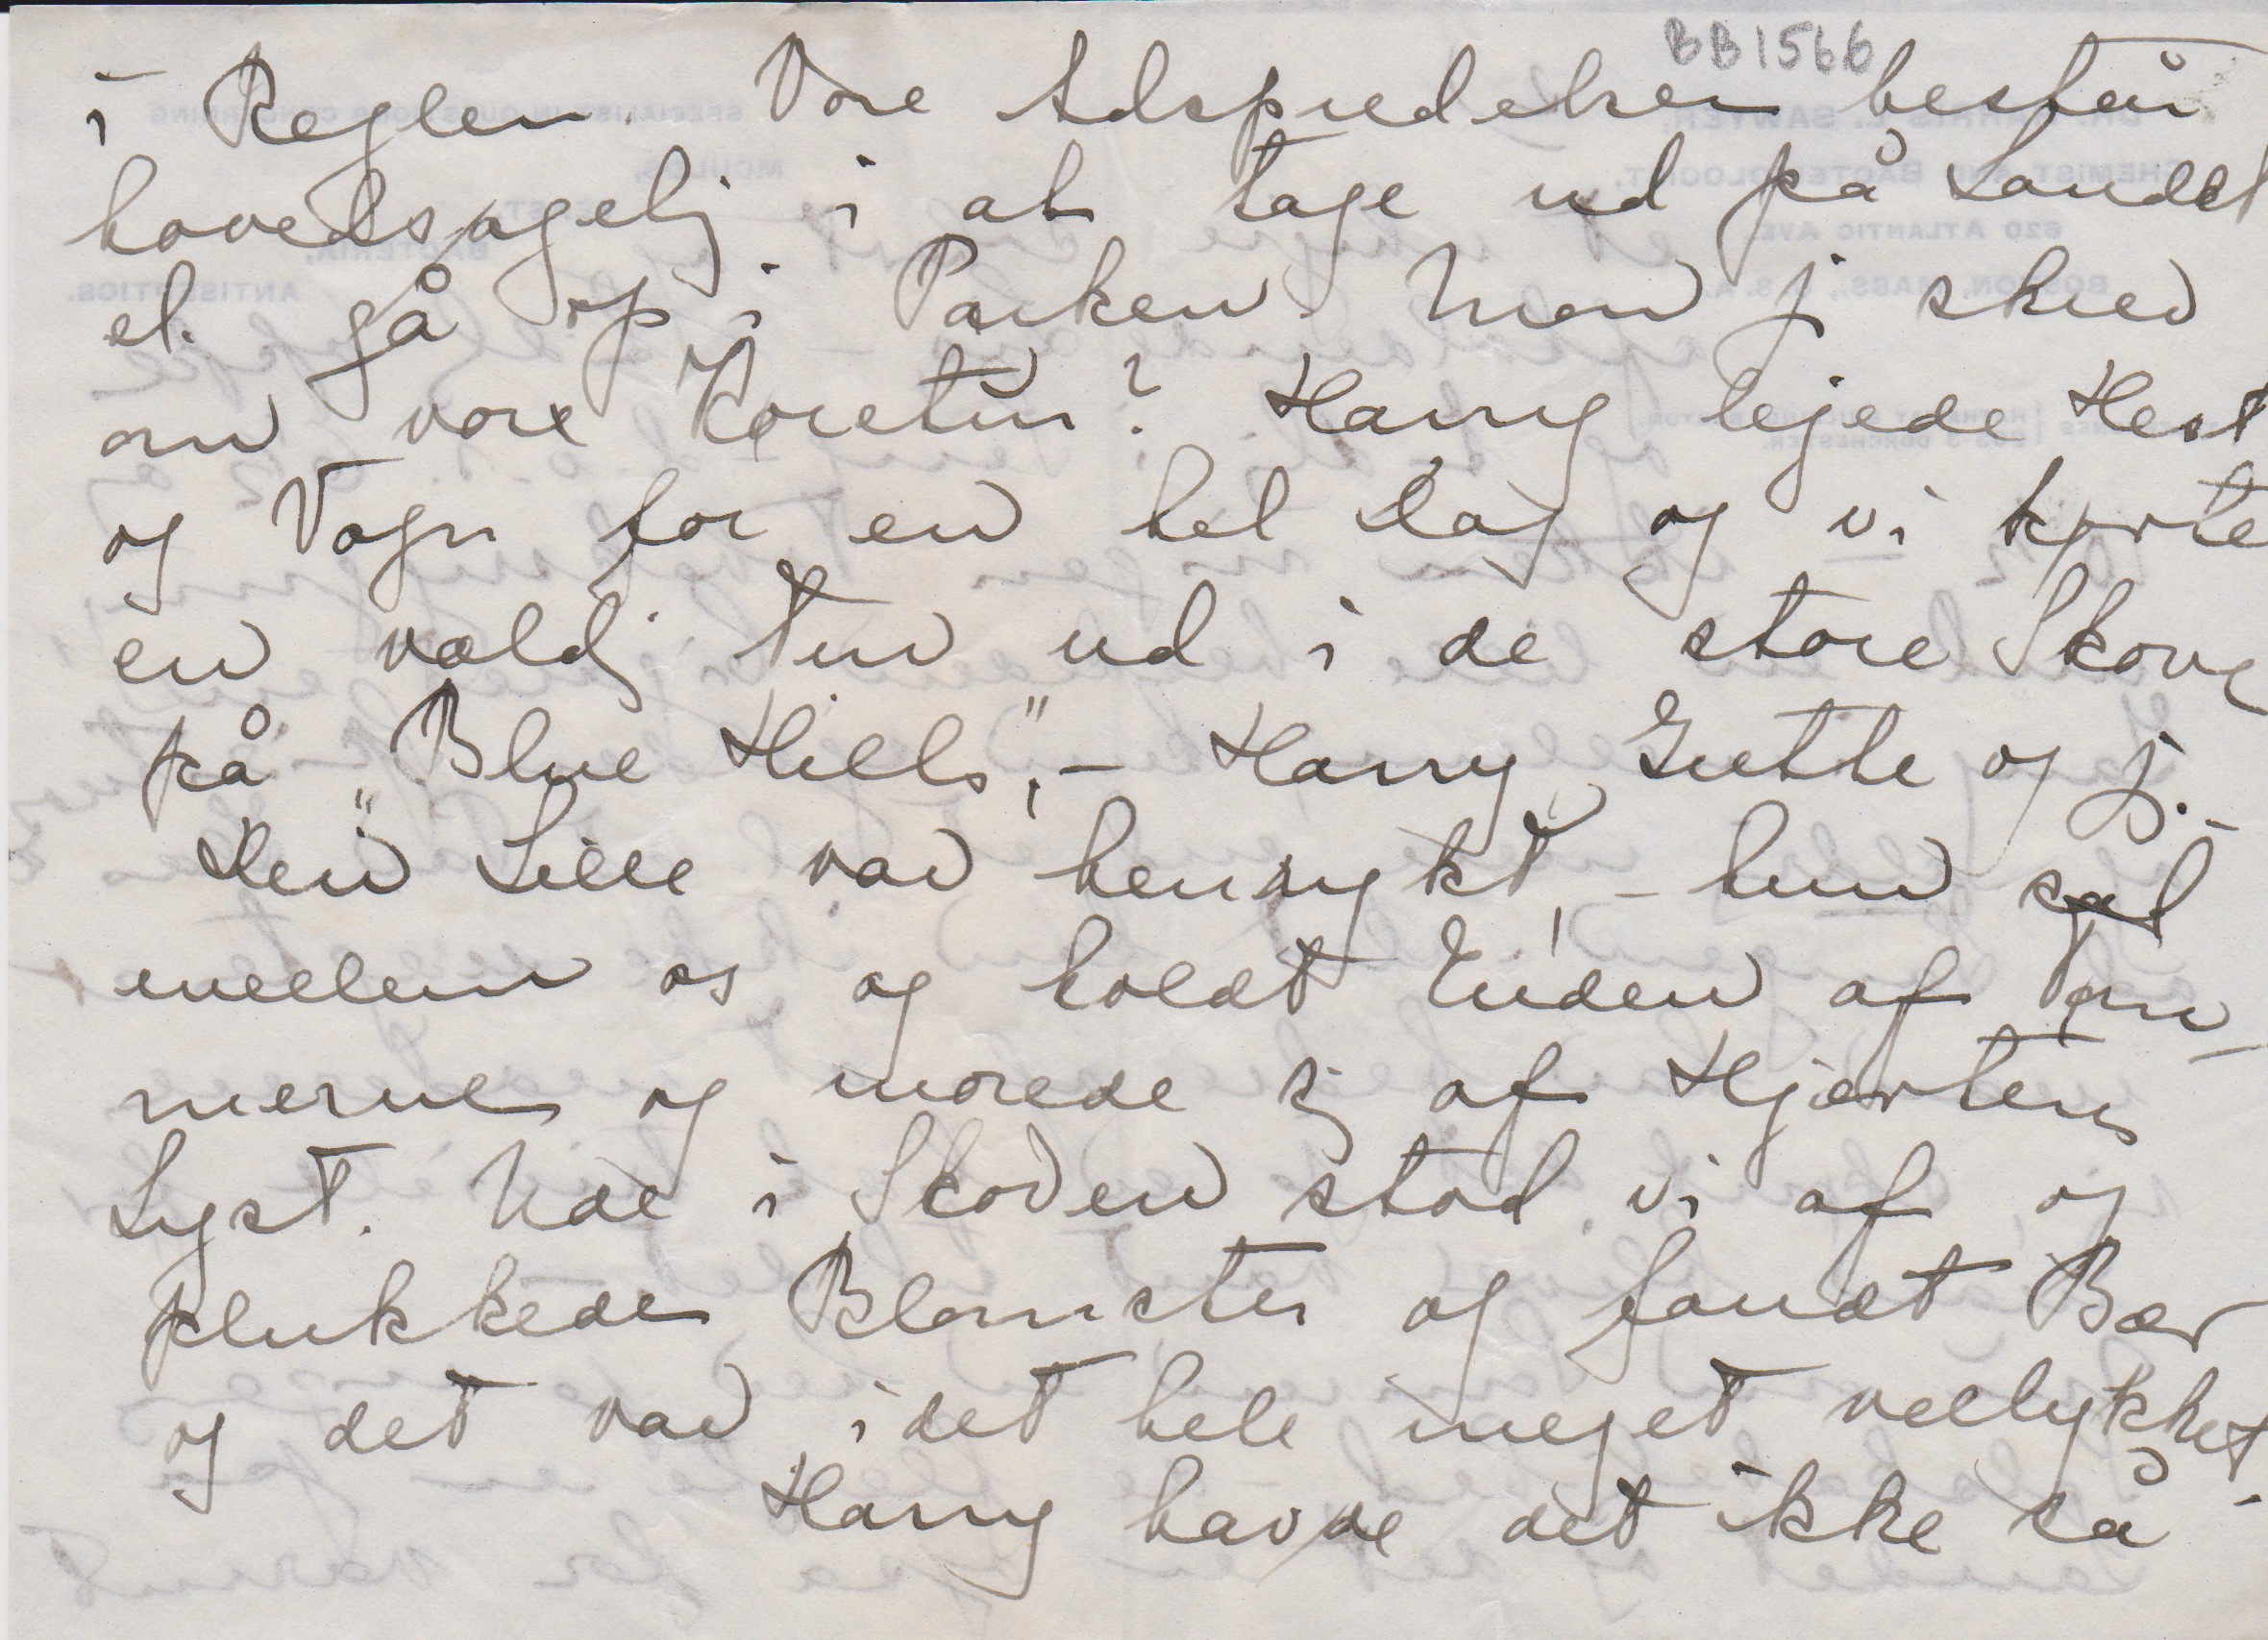 BB1566
i Reglen. Vore Adspredelser består
hovedsagelig i at tage ud på Landet
el. gå op i Parken. Mon j skrev
om vore Køretur? Harry lejede Hest
og Vogn for en hel Dag og vi kørte
en vældig Tur ud i de store Skove
på "Blue Hills", – Harry, Grethe og j. –
Den Lille var henrykt, – hun sad
mellem os og holdt Enden af Tøm-
merne og morede sig af Hjertens
Lyst. Ude i Skoven stod vi af og
plukkede Blomster og fandt Bær
og det var i det hele meget vellykket
Harry havde det ikke så